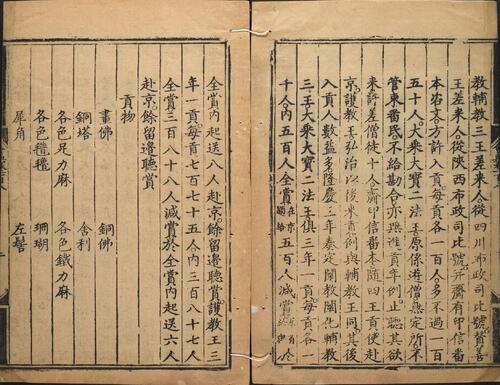 教輔教三王差來人從四川布政司比號贊善
王差來人從陝西布政司比號并齎有印信番
本咨文方許入貢每貢各一百人多不過一百
五十人大乘大寶二法王原係遊僧無定所不
管束番民不給勘合亦無進貢年例止聽其欲
來許差僧徒十人齎印信番本隨四王貢使赴
京護教王弘治以後來貢例與輔教王同其後
入貢人數益多隆慶三年定闡教闡化輔教
三王大乘大寶二法王俱三年一貢每貢各一
千人內五百人全賞在京五百人減賞
全賞內起送八人赴京餘留邊聽賞護教王三
年一貢每貢七百七十五人內三百八十七人
全賞三百八十八人減賞於全賞內起送六人
赴京餘留邊聽賞
貢物
畫佛 銅佛
銅塔 舍利
各色足力麻 各色鐵力麻
各色氆氌 珊瑚
犀角 左髻